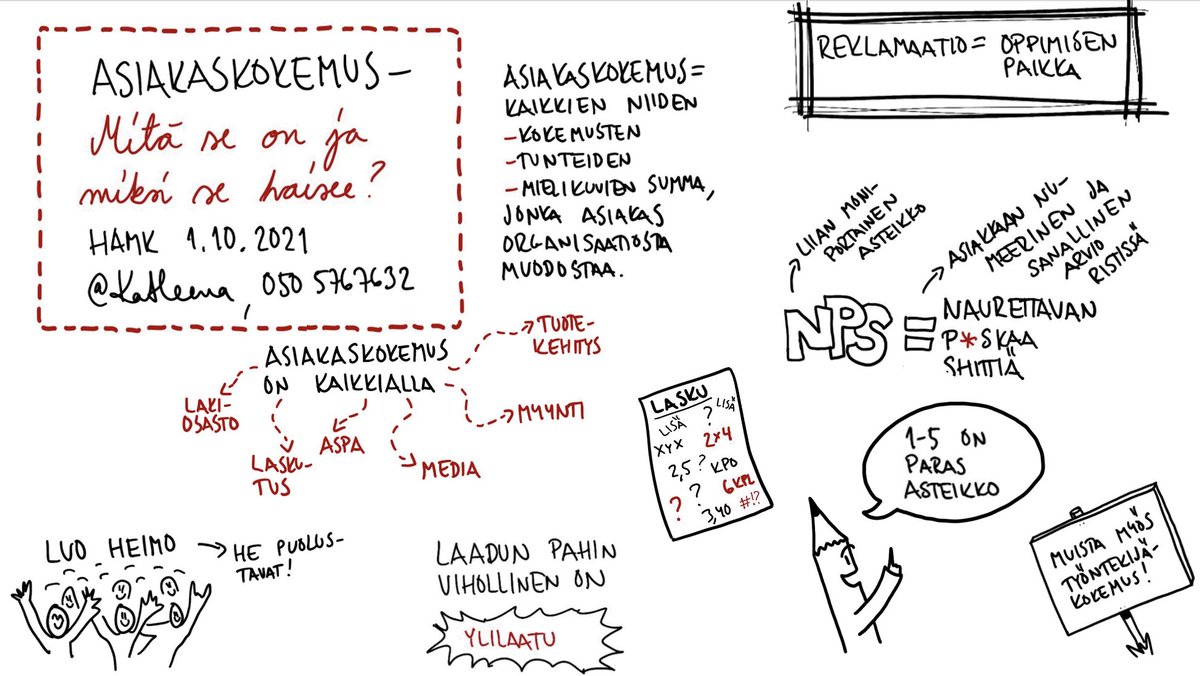 ASIAKASKOKEMUS –
Mitä se on ja
miksi se haisee?
HAMK 1.10.2021
@Katleena, 050 5767632
ASIAKASKOKEMUS=
KAIKKIEN NIIDEN
-KOKEMUSTEN
-TUNTEIDEN
-MIELIKUVIEN SUMMA,
JONKA ASIAKAS
ORGANISAATIOSTA
MUODOSTAA.
REKLAMAATIO= OPPIMISEN
PAIKKA
LIIAN MONI-
PORTAINEN
ASTEIKKO
ASIAKKAAN NU-
MEERINEN JA
SANALLINEN
ARVIO
RISTISSÄ
NPS = NAURETTAVAN
P*SKAA
SHITTIÄ
ASIAKASKOKEMUS
ON KAIKKIALLA
TUOTE-
KEHITYS
MYYNTI
MEDIA
ASPA
LASKU-
TUS
LAKI-
OSASTO
LASKU
LISÄ ? LISÄ
XYX 2x4
2,5 ? KPO
? ? 6KPL
3,40 #!?
1-5 ON
PARAS
ASTEIKKO
MUISTA MYÖS
TYÖNTEKIJÄ-
KOKEMUS!
LUO HEIMO → HE PUOLUS-
TAVAT!
LAADUN PAHIN
VIHOLLINEN ON
YLILAATU